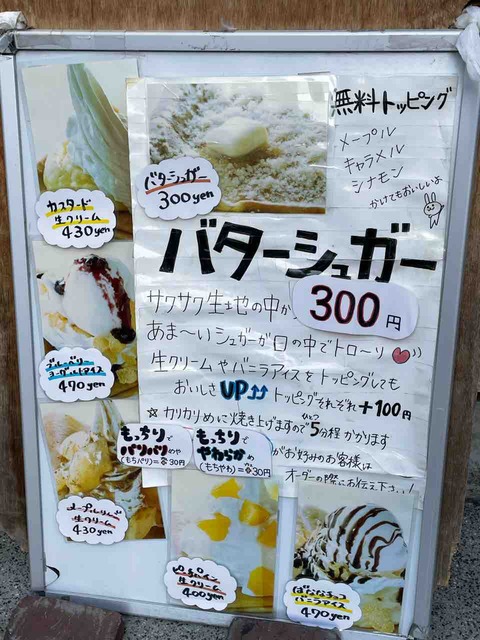 無料トッピング
メープル
キャラメル
シナモン
かけてもおいしいよ
バタシュガー
300yen
カスタード
生クリーム
430yen
バターシュガー
300円
サクサク生地の中か
あま〜いシュガーが口の中でトロ〜リ
生クリームやバニラアイスをトッピングしても
おいしさUP↑↑ トッピングそれぞれ+100円
☆カリカリめに焼き上げますので5分程かかります
ひとつ
ブルーベリー
ヨーグルトアイス
470yen
もっちりで
パリパリめや
(もちパリ)=30円
もっちりで
やわらかめ
(もちやわ)=30円
がお好みのお客様は
オーダーの際にお伝え下さい!
メープルりんご
生クリーム
430yen
生クリーム
400yen
ばななチョコ
バニラアイス
470yen